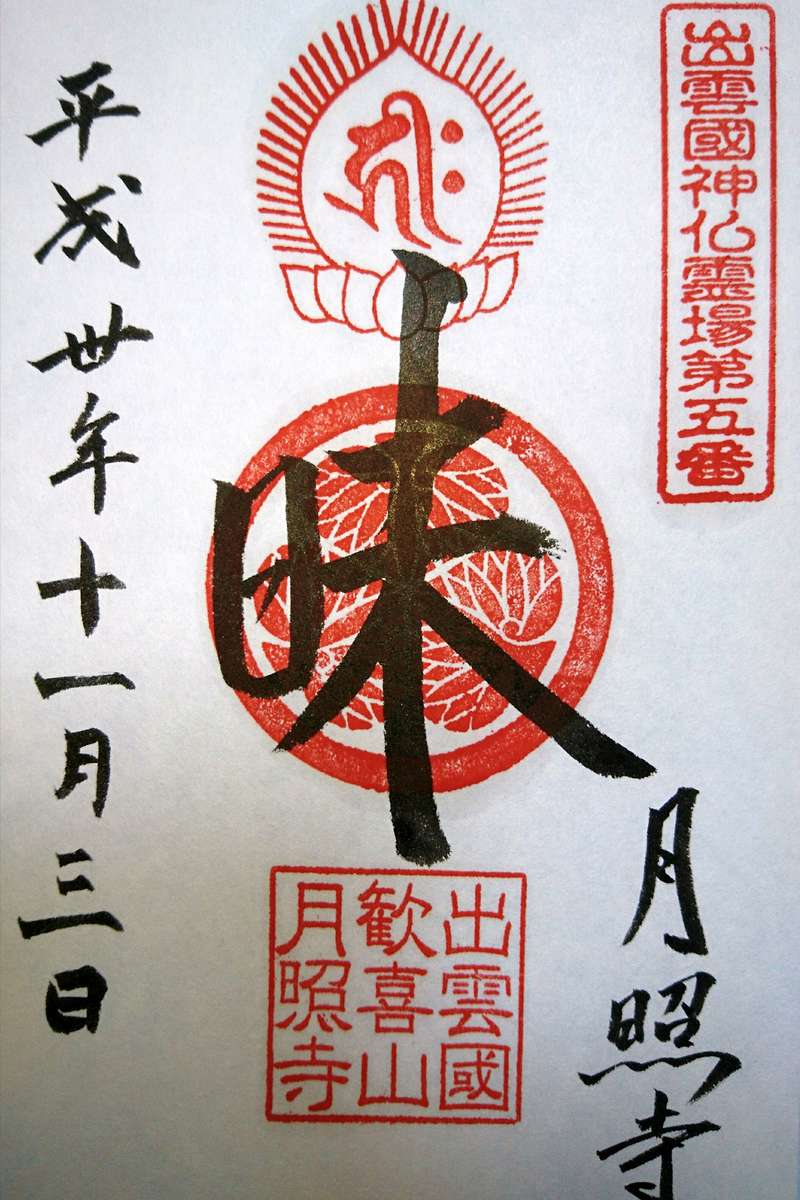 出雲國神仏霊場第五番
月照寺
ह्रीः
昧
出雲國
歓喜山
月照寺
平成卅年十一月三日